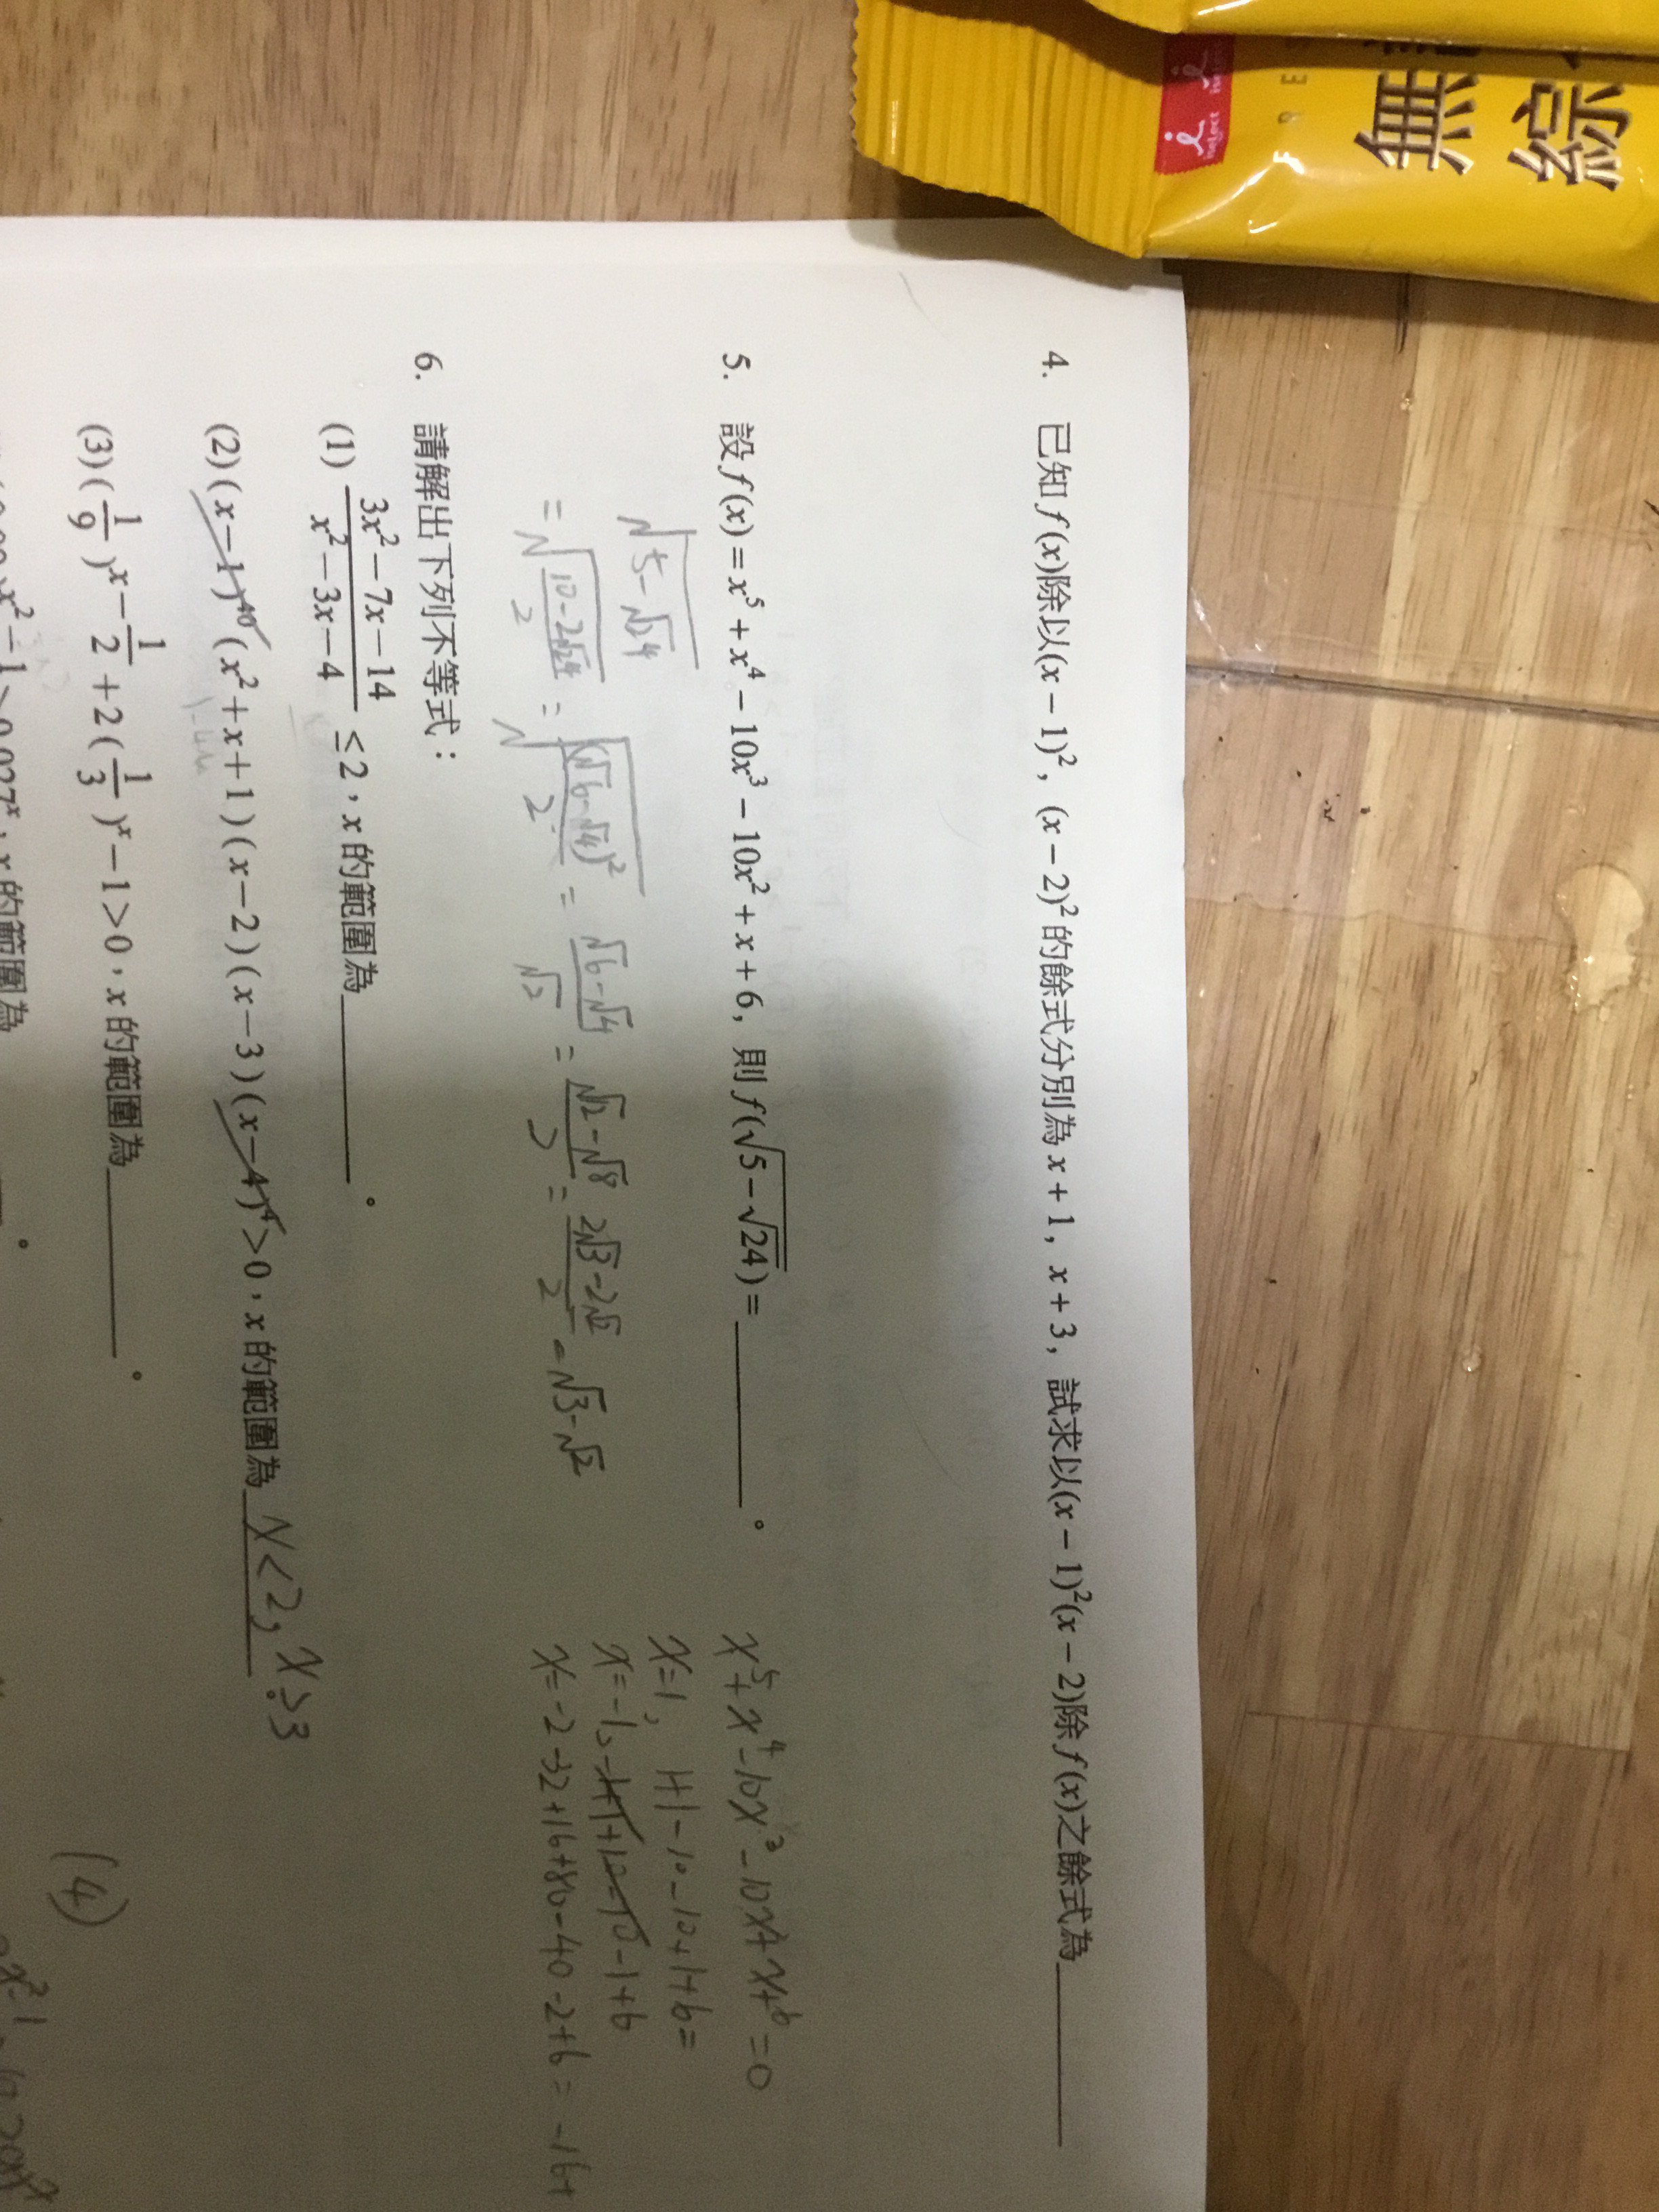 無
綜
iselect
4. 已知 f(x)除以(x－1)²，(x－2)²的餘式分別為 x＋1，x＋3，試求以(x－1)²(x－2)除 f(x)之餘式為＿＿＿＿
5. 設 f(x)＝x⁵＋x⁴－10x³－10x²＋x＋6，則 f(√(5－√24))＝＿＿＿＿。
√(5-√24)
=√((10-2√24)/2) = √((√6-√4)²/2) = (√6-√4)/√2 = (√12-√8)/2 = (2√3-2√2)/2 = √3-√2
x⁵+x⁴-10x³-10x²+x+6=0
x=1, 1+1-10-10+1+6=
x=-1, -1+1+10-10-1+6
x=-2 -32+16+80-40-2+6 = -16+
6. 請解出下列不等式：
(1) (3x²－7x－14)/(x²－3x－4) ≤2，x 的範圍為＿＿＿＿。
(2)(x－1)⁴⁰(x²＋x＋1)(x－2)(x－3)(x－4)⁴>0，x 的範圍為 x<2, x>3
(3)(1/9)^(x－1/2)＋2(1/3)^x－1>0，x 的範圍為＿＿＿＿。
(4)
x²－1>0.027ˣ，x 的範圍為＿＿＿＿。